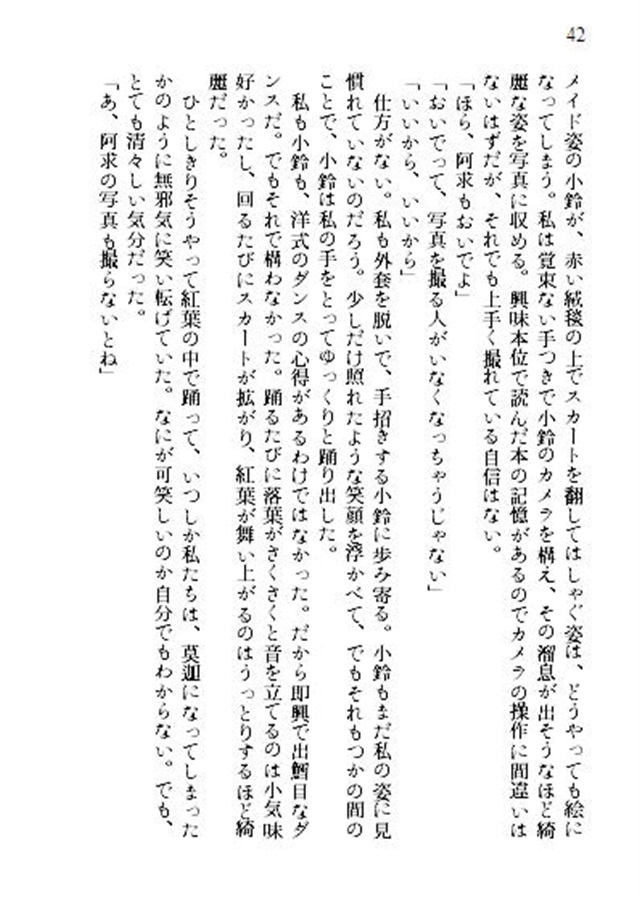 42
メイド姿の小鈴が、赤い絨毯の上でスカートを翻してはしゃぐ姿は、どうやっても絵に
なってしまう。私は覚束ない手つきで小鈴のカメラを構え、その溜息が出そうなほど綺
麗な姿を写真に収める。興味本位で読んだ本の記憶があるのでカメラの操作に間違いは
ないはずだが、それでも上手く撮れている自信はない。
「ほら、阿求もおいでよ」
「おいでって、写真を撮る人がいなくなっちゃうじゃない」
「いいから、いいから」
仕方がない。私も外套を脱いで、手招きする小鈴に歩み寄る。小鈴もまだ私の姿に見
慣れていないのだろう。少しだけ照れたような笑顔を浮かべて、でもそれもつかの間の
ことで、小鈴は私の手をとってゆっくりと踊り出した。
私も小鈴も、洋式のダンスの心得があるわけではなかった。だから即興で出鱈目なダ
ンスだ。でもそれで構わなかった。踊るたびに落葉がさくさくと音を立てるのは小気味
好かったし、回るたびにスカートが拡がり、紅葉が舞い上がるのはうっとりするほど綺
麗だった。
ひとしきりそうやって紅葉の中で踊って、いつしか私たちは、莫迦になってしまった
かのように無邪気に笑い転げていた。なにが可笑しいのか自分でもわからない。でも、
とても清々しい気分だった。
「あ、阿求の写真も撮らないとね」